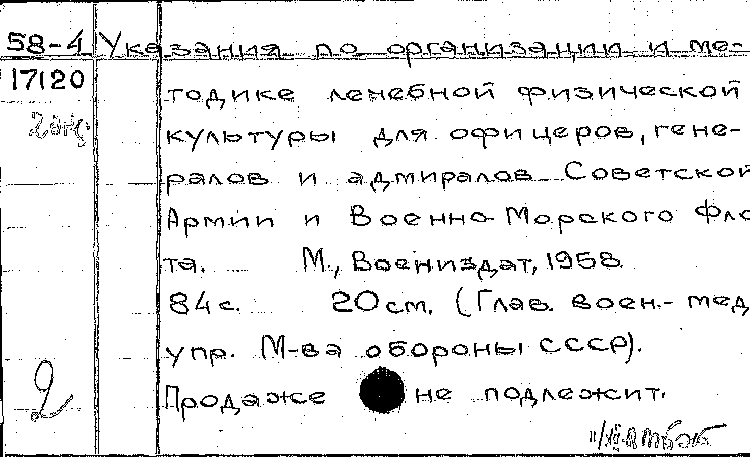 58-4 Указания по организации и ме-
17120 тодике лечебной физической
культуры для офицеров, гене-
ралов и адмиралов Советской
Армии и Военно-Морского Фло
та. М., Воениздат, 1958.
84 с. 20 см. (Глав. воен.-мед
упр. М-ва обороны СССР).
2
Продаже не подлежит.